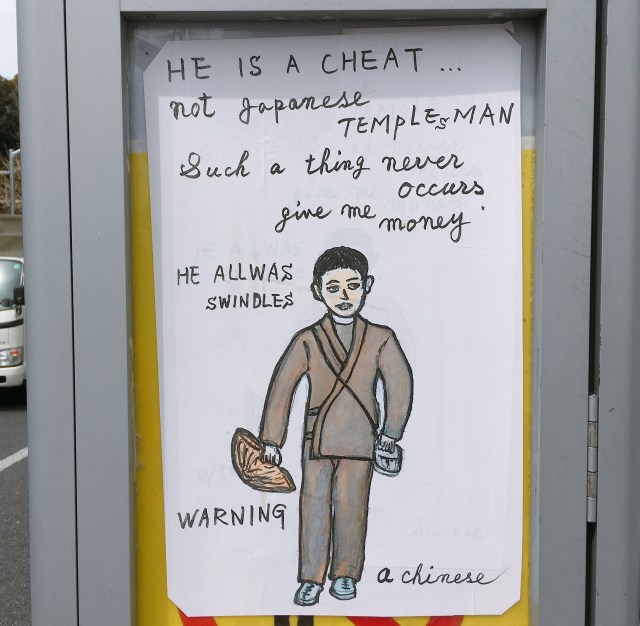 HE IS A CHEAT ...
not Japanese
TEMPLEsMAN
Such a thing never
occurs
give me money.
HE ALLWAS
SWINDLES
WARNING
a chinese